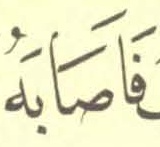 فَاَصَابَهُ